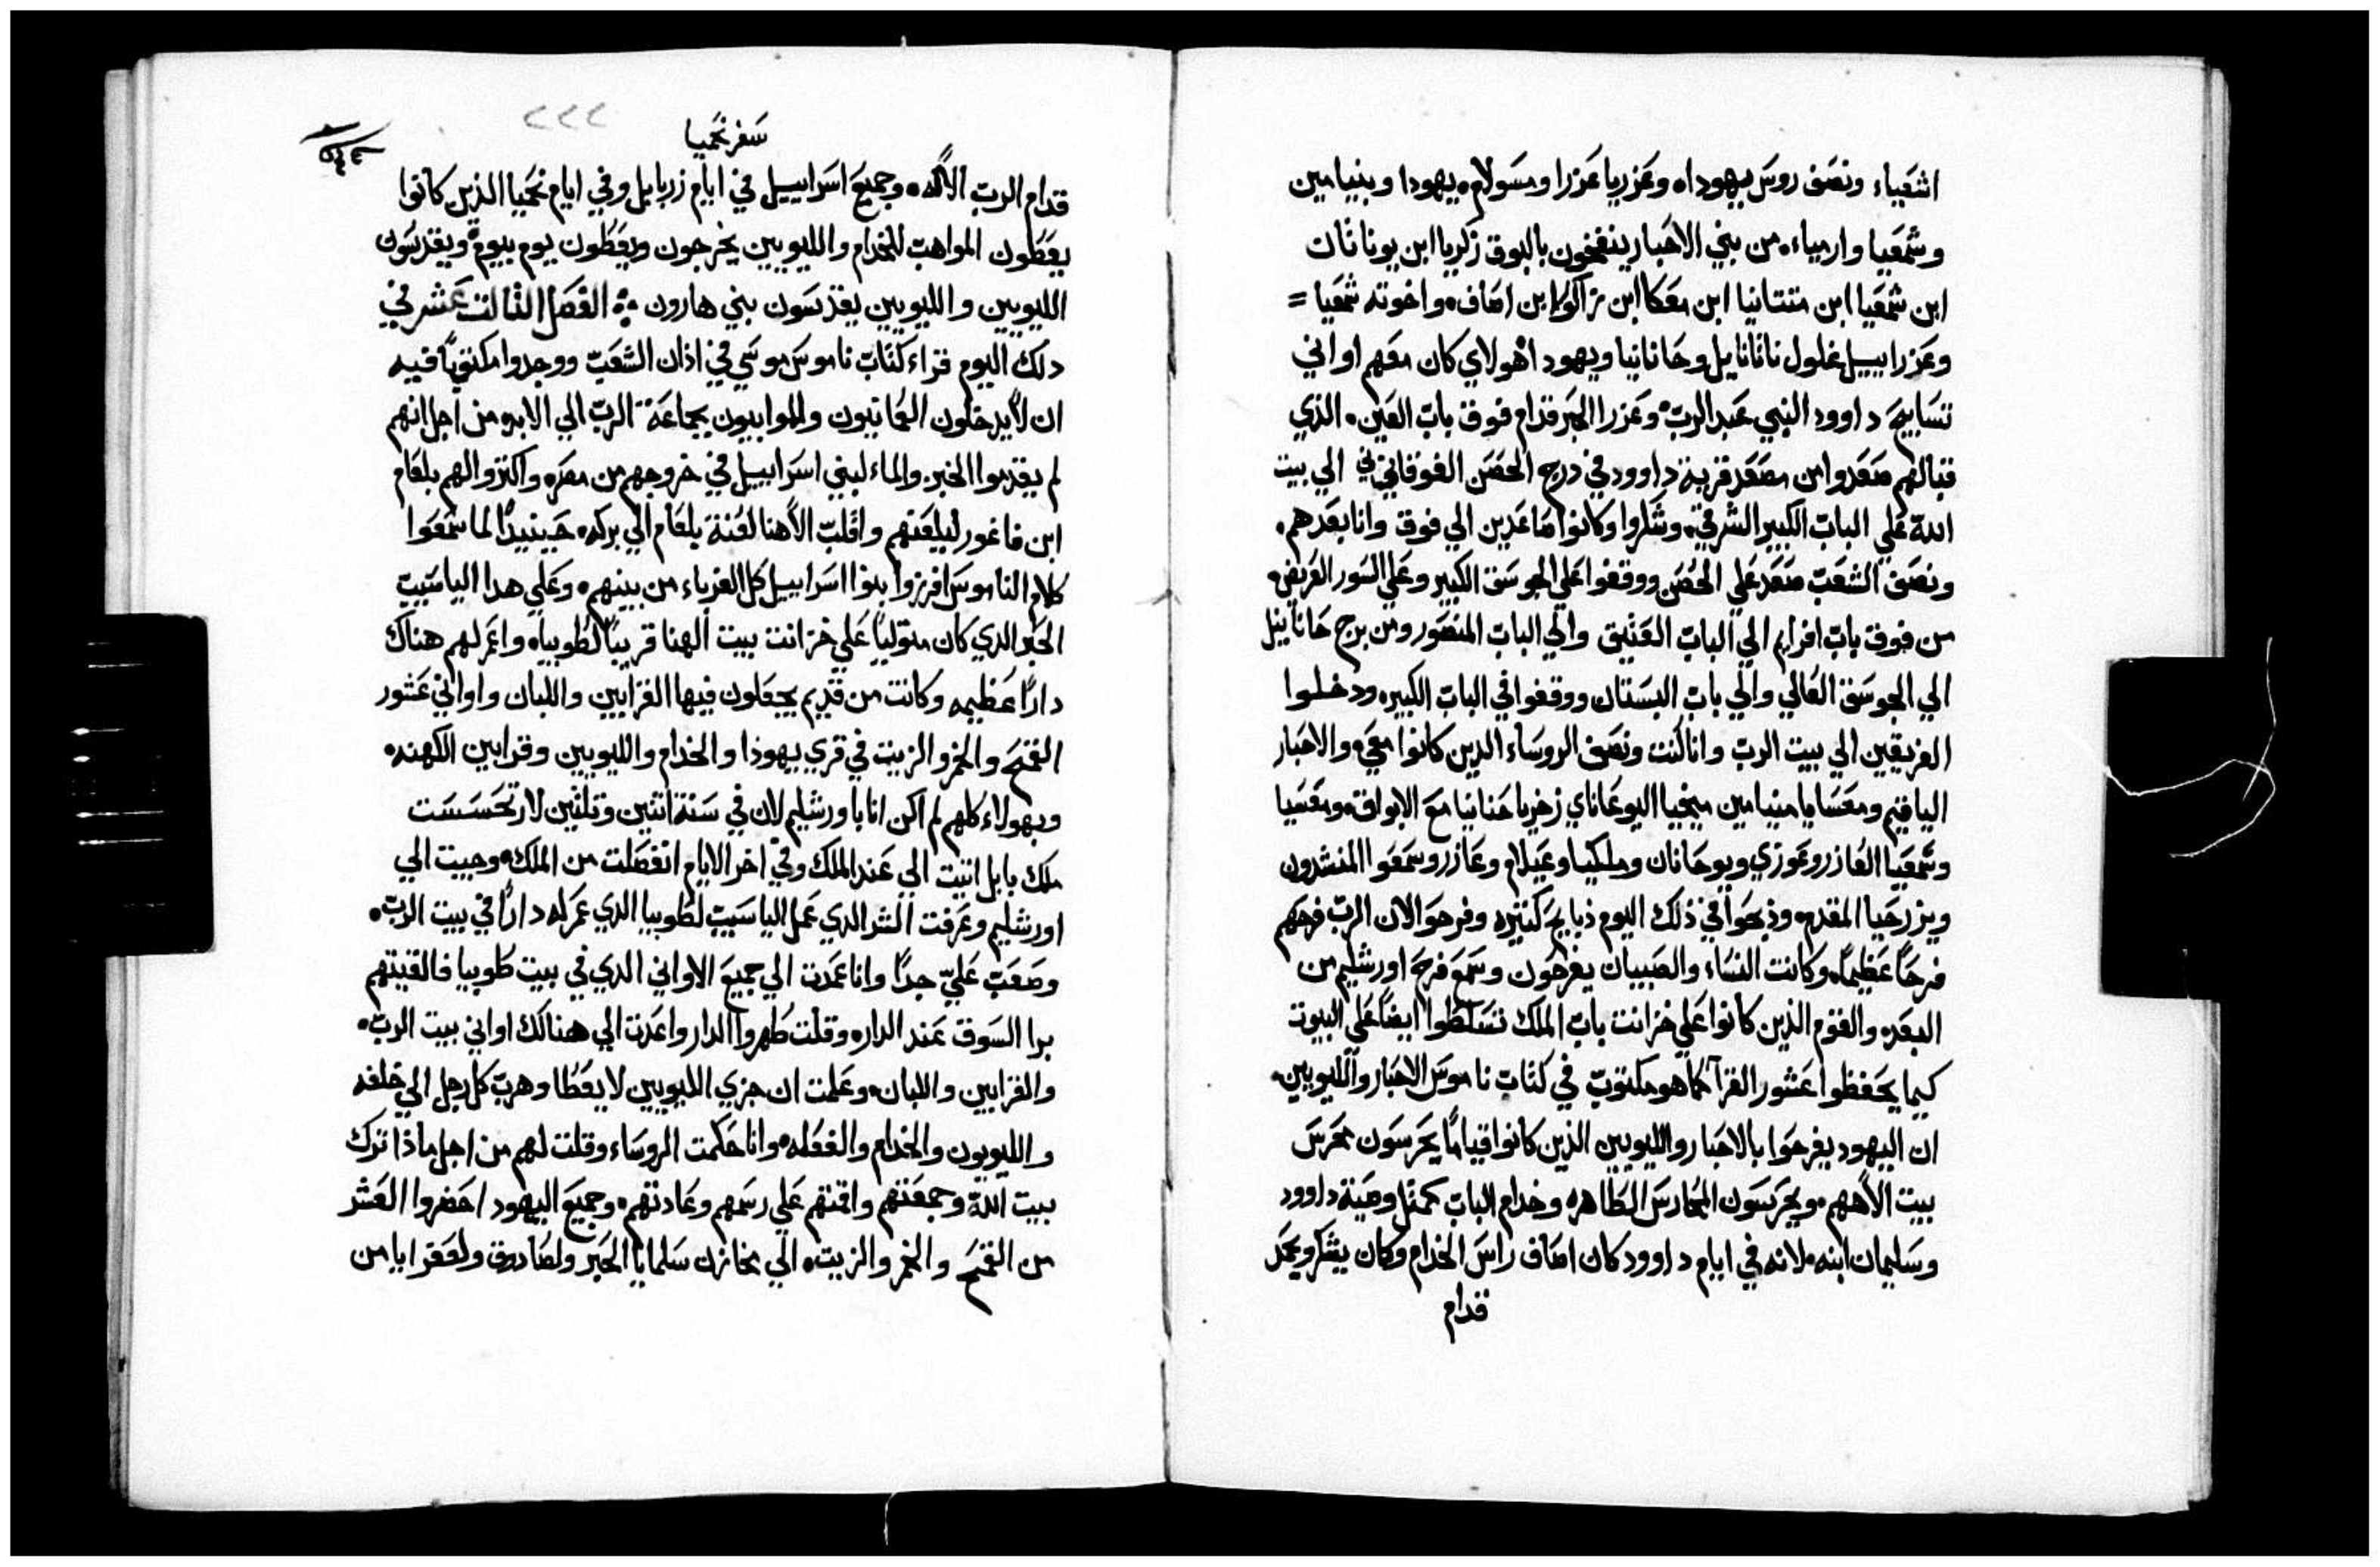 اشعياء ونصف روس يهوداه وعزريا عزرا ومسولام. يهودا وبنيامين
وشمعيا وارمياء. من بني الاحبار ينفخون بالبوق زكريا ابن يوناثان
ابن شمعيا ابن متتانيا ابن معكا ابن زاكور ابن اصاف. واخوته شمعيا =
وعزراييل غلول ناثانايل وحانانيا ويهودا هولاي كان معهم اواني
تسابيح داوود النبي عبد الرب. وعزرا الحبر قدام فوق باب العين. الذي
قبالهم صعدوا من مصعد قرية داوود في درج الحصن الفوقاني الي بيت
الله علي الباب الكبير الشرقي. وشكروا وكانوا صاعدين الي فوق وانا بعدهم.
ونصف الشعب صعد علي الحصن ووقفوا علي الجوسق الكبير وعلي السور العريض.
من فوق باب افرايم الي الباب العتيق والي الباب المنصور ومن برج حانانييل
الي الجوسق العالي والي باب البستان ووقفوا في الباب الكبيره ودخلوا
الفريقين الي بيت الرب وانا كنت ونصف الروساء الدين كانوا معي. والاحبار
الياقيم ومعسايا منيامين ميخيا اليوعاناي زخريا حنانيا مع الابواق. ومعسيا
وشمعيا العازر وعوزي ويوحانان وملكيا وعيلام وعازر وسمعوا المنشدون
ويزرحيا المقدم. وذبحوا في ذلك اليوم ذبايح كثيره وفرحوا لان الرب فرحهم
فرحا عظيما. وكانت النساء والصبيان يفرحون وسمع فرح اورشليم من
البعد. والقوم الذين كانوا علي خزانت باب الملك تسلطوا ايضا علي البيوت
كيما يحفظوا عشور القرآ كما هو مكتوب في كتاب ناموس الاحبار والليويين.
ان اليهود يفرحوا بالاحبار والليويين الذين كانوا قياما يحرسون محرس
بيت الاههم. ويحرسون المحارس الطاهره وخدام الباب كمثل وصية داوود
وسليمان ابنه. لانه في ايام داوود كان اصاف راس الخدام وكان يشكر ويمجد
قدام
٢٢٢
سفر نحميا
قدام الرب الاله. وجميع اسراييل في ايام زربابل وفي ايام نحميا الذين كانوا
يعطون المواهب للخدام والليويين يخرجون ويعطون يوم بيوم. ويقدسون
الليويين والليويين يقدسون بني هارون ؞ الفصل الثالث عشر في
دلك اليوم قراء كتاب ناموس موسي في اذان الشعب ووجدوا مكتوبا فيه
ان لا يدخلون العمانيون والموابيون بجماعة الرب الي الابد. من اجل انهم
لم يقدموا الخبز والماء لبني اسراييل في خروجهم من مصر. واكتروا لهم بلعام
ابن فاغور ليلعنهم واقلب الاهنا لعنة بلعام الي بركه. حينيدا لما سمعوا
كلام الناموس افرزوا بنوا اسراييل كل الغرباء من بينهم. وعلي هدا الياسيب
الحبر الدي كان متوليا علي خزانت بيت الهنا قريبا لطوبيا. واعمر لهم هناك
دارا عظيمه وكانت من قديم يجعلون فيها القرابين واللبان واواني عشور
القمح والخمر والزيت في قري يهوذا والخدام والليويين وقرابين الكهنه.
وبهولاء كلهم لم اكن انا باورشليم لان في سنة اتنين وتلثين لارتحسست
ملك بابل اتيت الي عند الملك وفي اخر الايام انفصلت من الملك. وجيت الي
اورشليم وعرفت الشر الدي عمل الياسيب لطوبيا الدي عمر له دارا في بيت الرب.
وصعب علي جدا وانا عمدت الي جميع الاواني الدي في بيت طوبيا فالقيتهم
برا السوق عند الدار. وقلت طهروا الدار واعدت الي هنالك اواني بيت الرب.
والقرابين واللبان. وعلمت ان جزي الليويين لا يعطا وهرب كل رجل الي حلقه
والليويون والخدام والفعله. وانا حكمت الروساء وقلت لهم من اجل ماذا ترك
بيت الله وجمعتهم واقمتهم علي رسمهم وعادتهم. وجميع اليهود احضروا العشر
من القمح والخمر والزيت. الي مخازن سلمايا الحبر ولصادوق ولعقرايا من